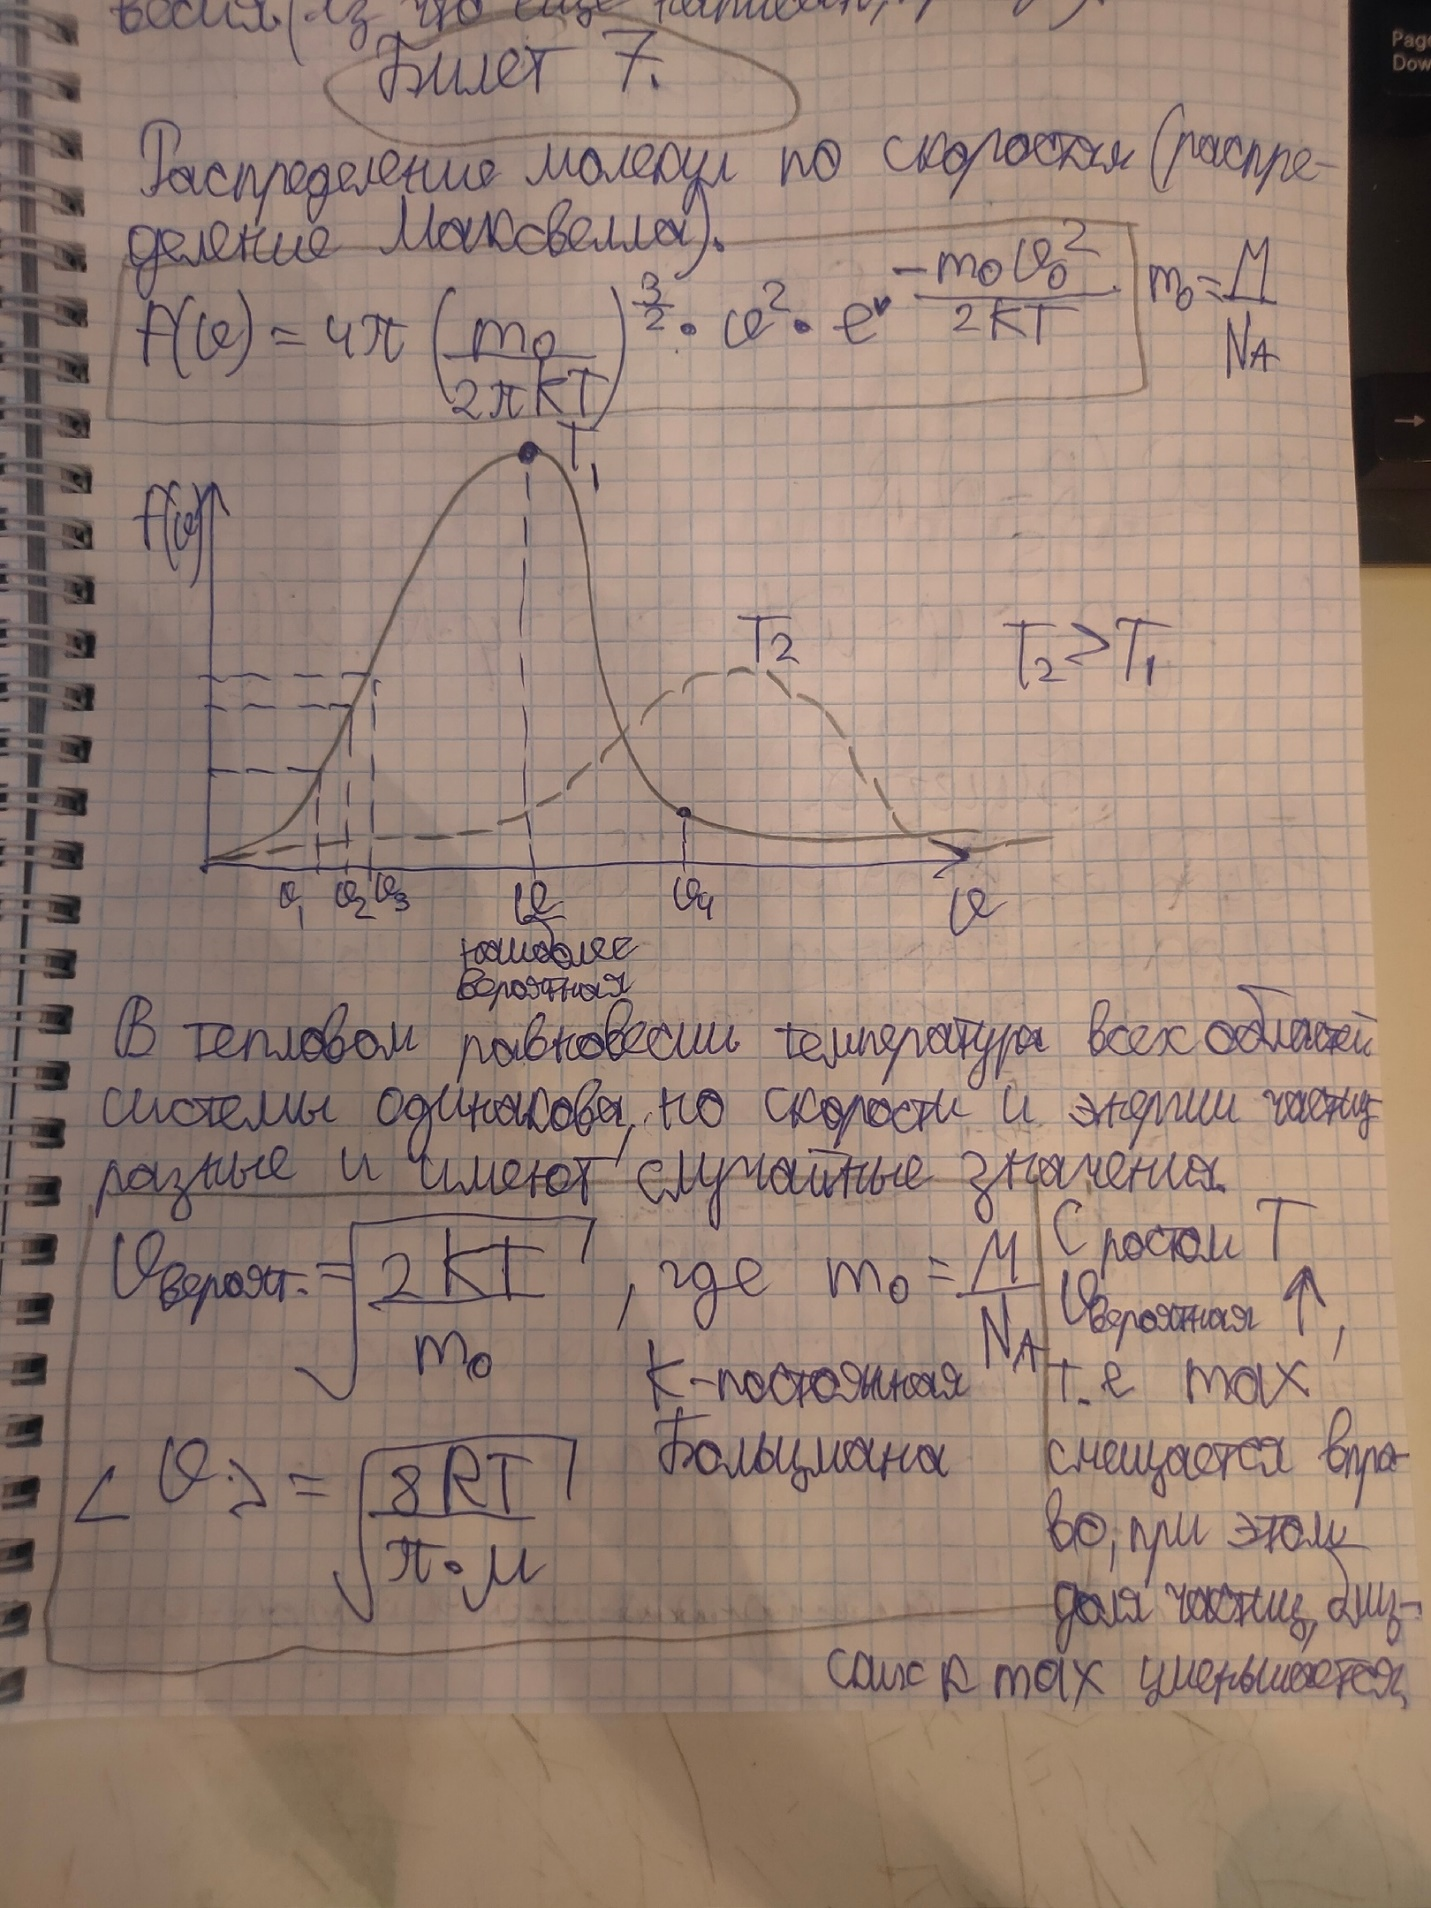 Билет 7.
Распределение молекул по скоростям (распре-
деление Максвелла).
f(v) = 4π (m₀ / 2πkT)^(3/2) · v² · e^(-m₀v₀² / 2kT)
m₀ = M / N_A
T₁
f(v)
T₂
T₂ > T₁
v₁ v₂ v₃ v v₄ v
наиболее
вероятная
В тепловом равновесии температура всех областей
системы одинакова, но скорости и энергии частиц
разные и имеют случайные значения.
v вероят. = √(2kT / m₀), где m₀ = M / N_A
k - постоянная
Больцмана
<v> = √(8RT / π·μ)
С ростом T
v вероятная ↑,
т.е max
смещается впра-
во, при этом
доля частиц, близ-
ких к max уменьшается,